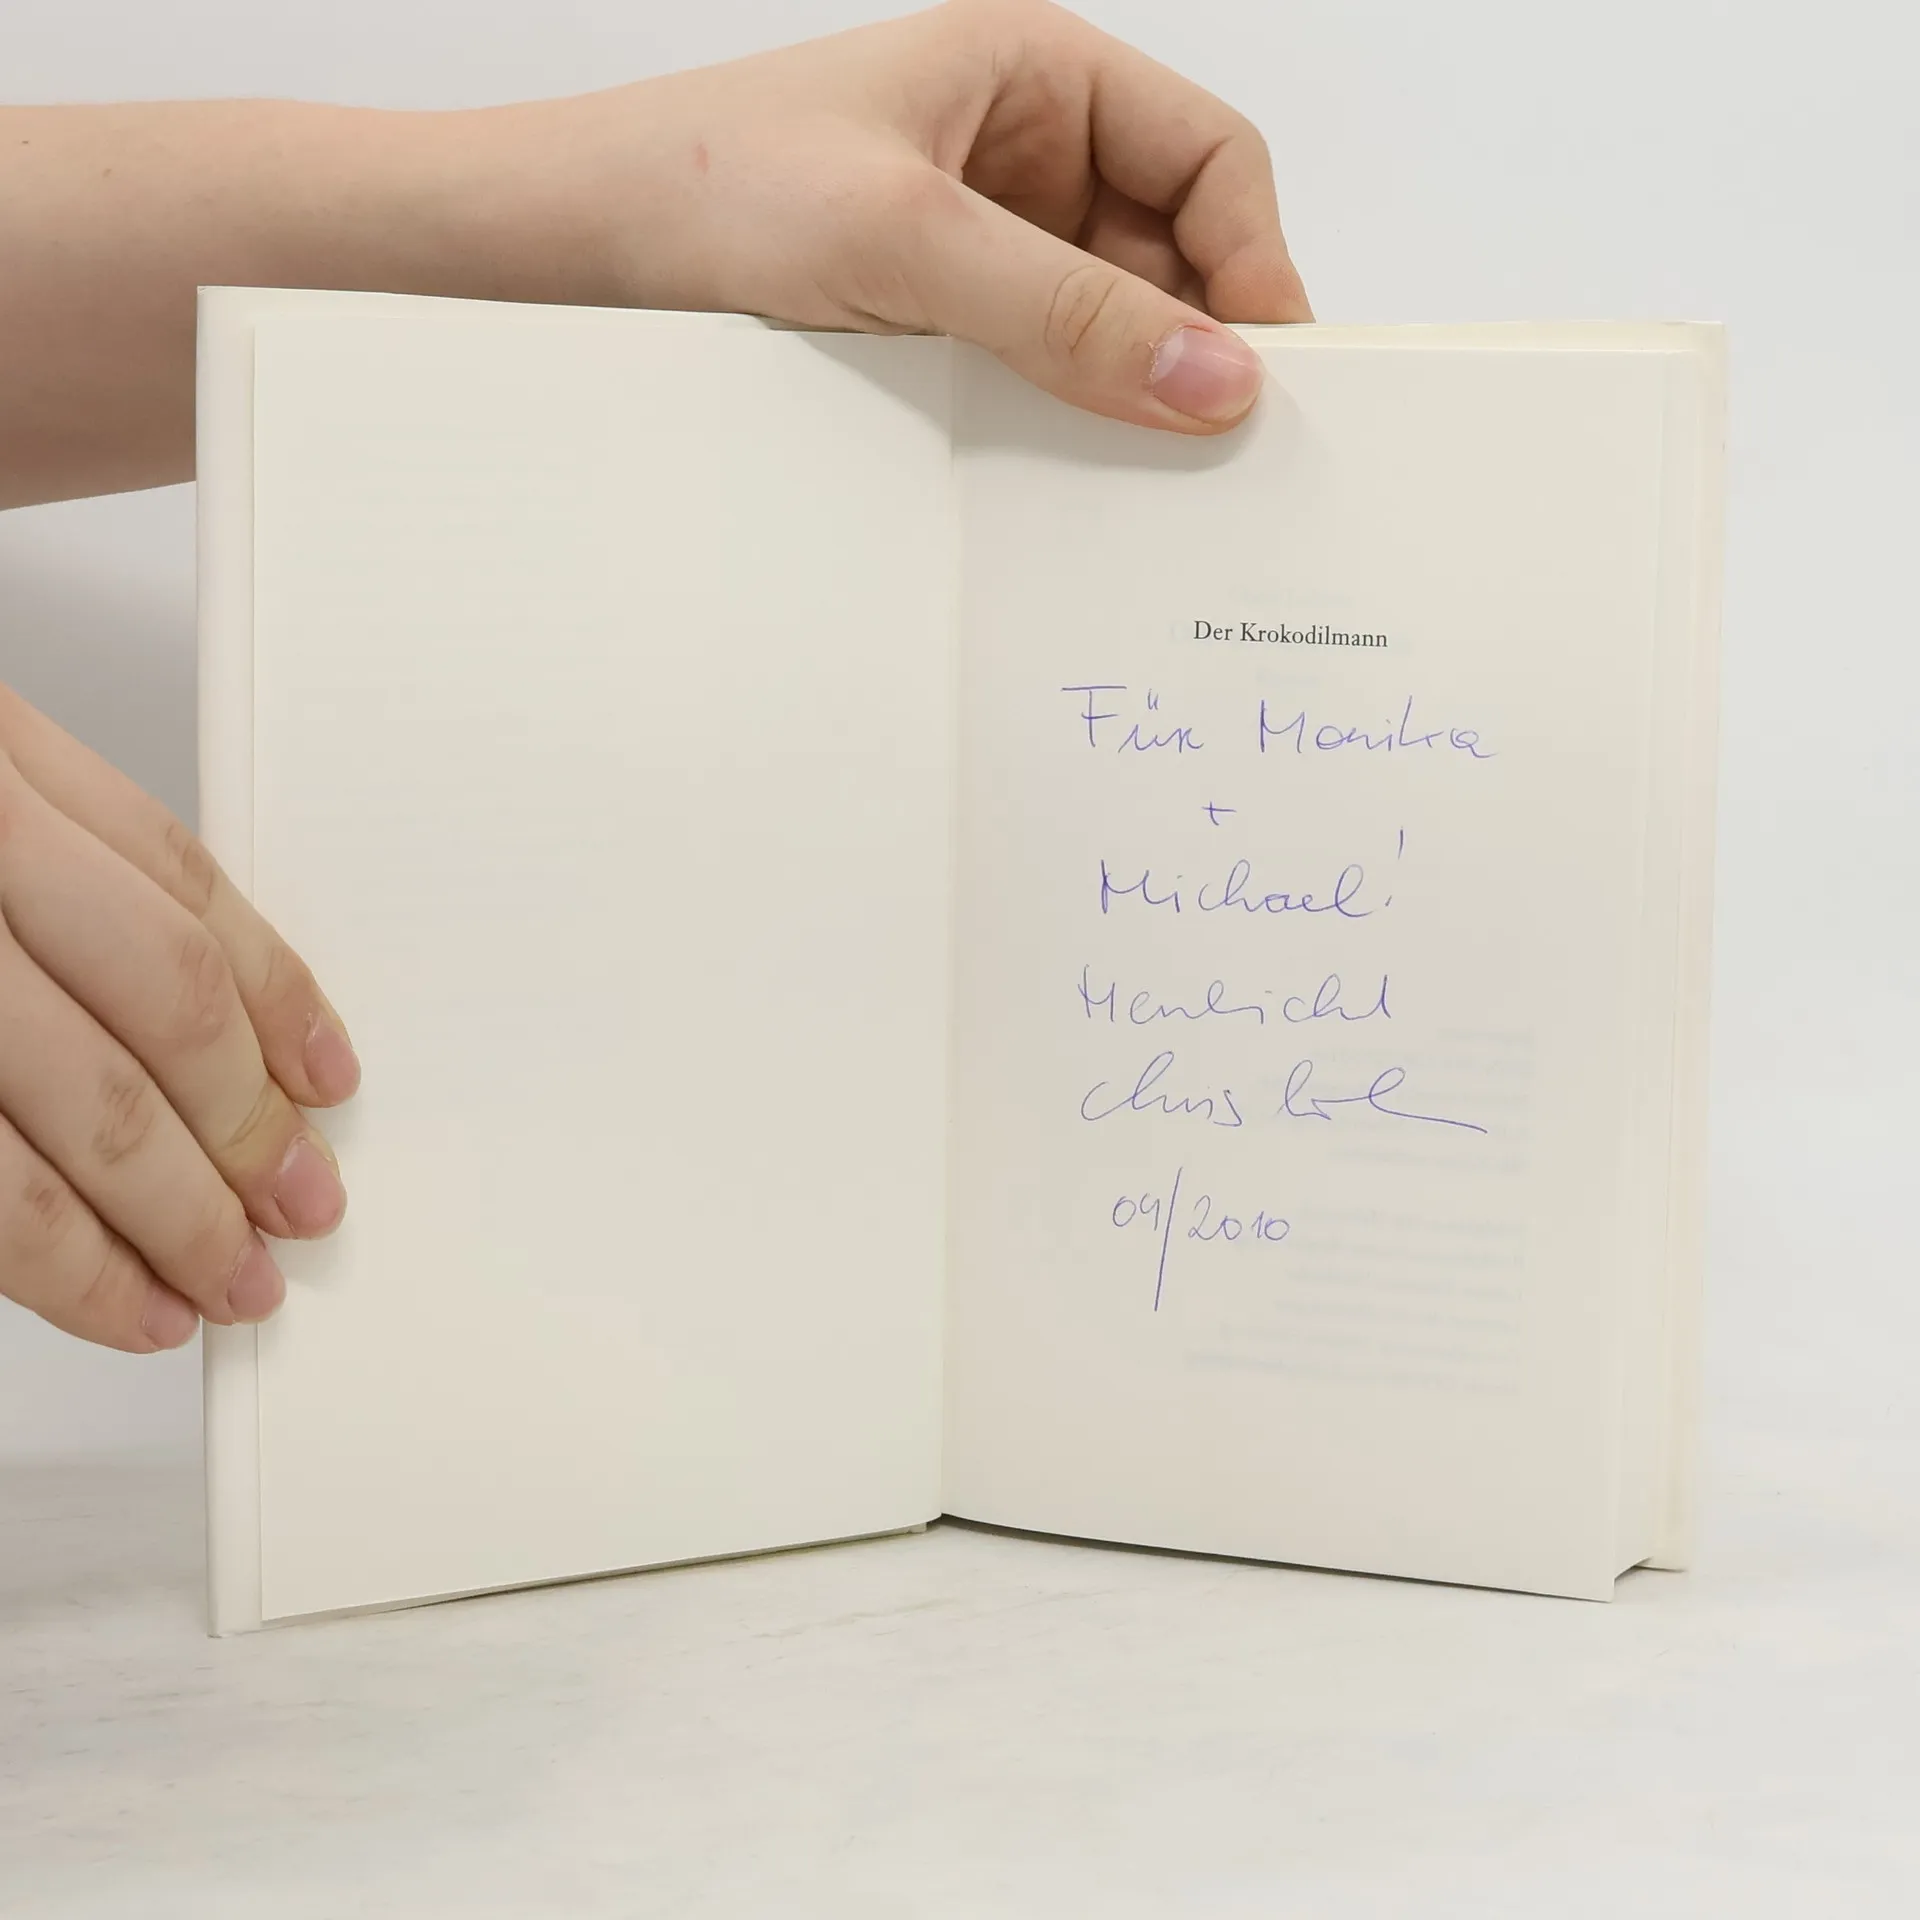 Der Krokodilmann
Für Monika
+
Michael!
Herzlichst
Chris
09/2010